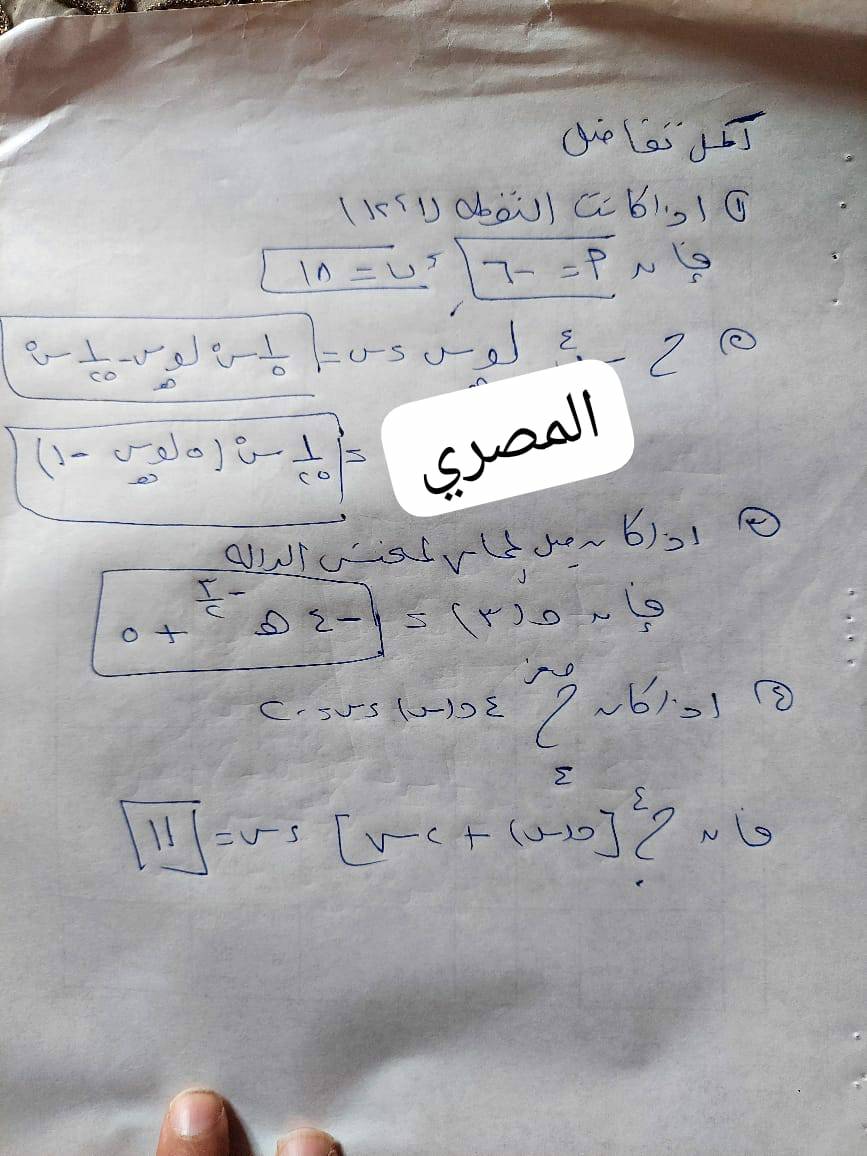 أكمل تفاضل
① اذا كانت النقطه (١٢،١)
فإن أ = -٦ ، ب = ١٨
② س٤ لوهـ س ءس = ١/٥ س٥ لوهـ س - ١/٢٥ س٥
= ١/٢٥ س٥ (٥ لوهـ س - ١)
المصري
③ اذا كان ميل المماس لمنحنى الداله
فإن د(٣) = -٤ هـ -٣/٢ + ٥
④ اذا كان ∫ صفر ٤ ٤ د(س) ءس = ٢٠
فإن ∫ ٤ ٠ [د(س) + ٢س] ءس = ١١